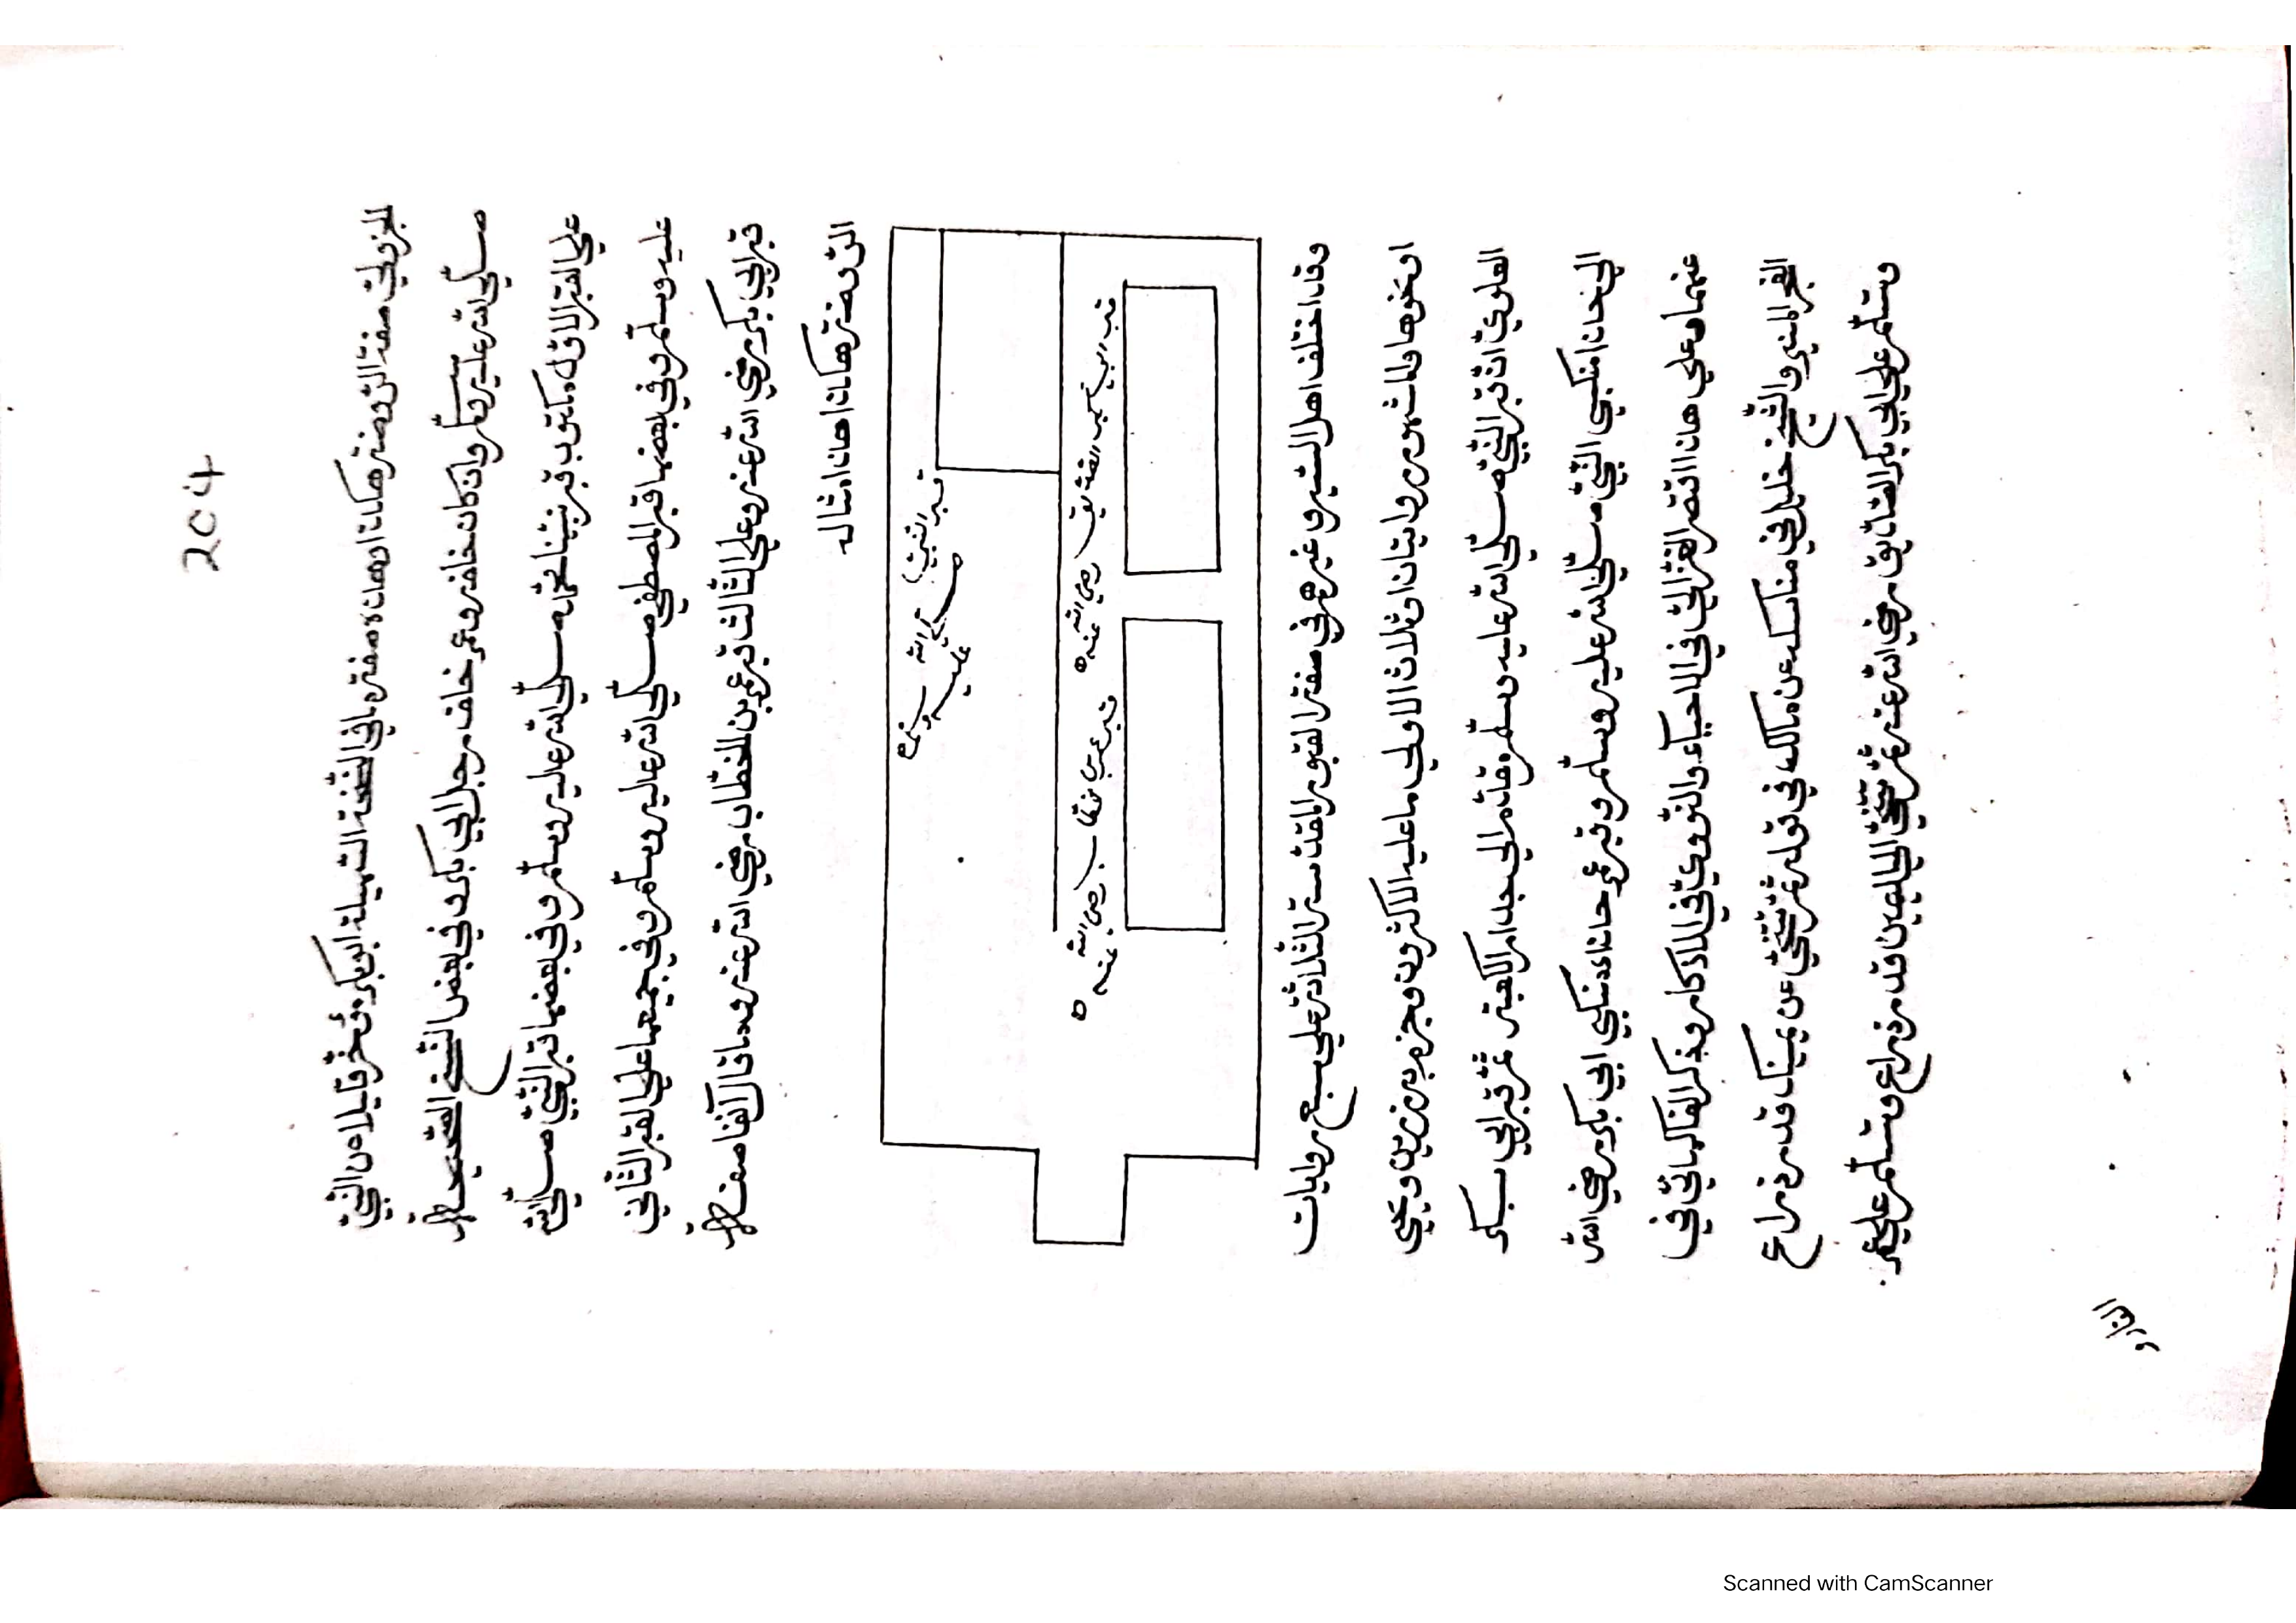 204
للجزولي صفة الروضة هكذا وهذه صفة ما في النسخة السهلية ابو بكر مؤخر قليلا من النبي
صلى الله عليه وسلم وان كان خلفه وعمر خلف رجلي ابي بكر وفي بعض النسخ القديمة
على القبر الاول مكتوب قبر نبينا محمد صلى الله عليه وسلم وفي بعضها قبر النبي صلى الله
عليه وسلم وفي بعضها قبر المصطفى صلى الله عليه وسلم وفي جميعها على القبر الثاني
قبر ابي بكر رضي الله عنه وعلى الثالث قبر عمر بن الخطاب رضي الله عنه وما قال آنفا صفة
الروضة هكذا هذا مثاله
قبر النبي
صلى الله عليه وسلم
قبر ابي بكر الصديق رضي الله عنه
قبر عمر بن الخطاب رضي الله عنه
وقد اختلف اهل السير وغيرهم في صفة القبور المقدسة الثلاثة على سبع روايات
او نحوها والمشهور روايتان او ثلاث الاولى ما عليه الاكثرون وجزم به رزين ويحيى
العلوي ان قبر النبي صلى الله عليه وسلم مقدم الى جدار القبلة ثم قبر ابي بكر
الى حذا منكبي النبي صلى الله عليه وسلم وقبر عمر حذا منكبي ابي بكر رضي الله
عنهما وعلى هذا اقتصر الغزالي في الاحياء والنووي في الاذكار وذكر الفاكهاني في
الفجر المنير والشيخ خليل في مناسكه عن مالك في قوله ثم تتنحى عن يمينك قدر ذراع
وتسلم على ابي بكر الصديق رضي الله عنه ثم تتنحى الى اليمين قدر ذراع وتسلم على عمر
الفارو
Scanned with CamScanner